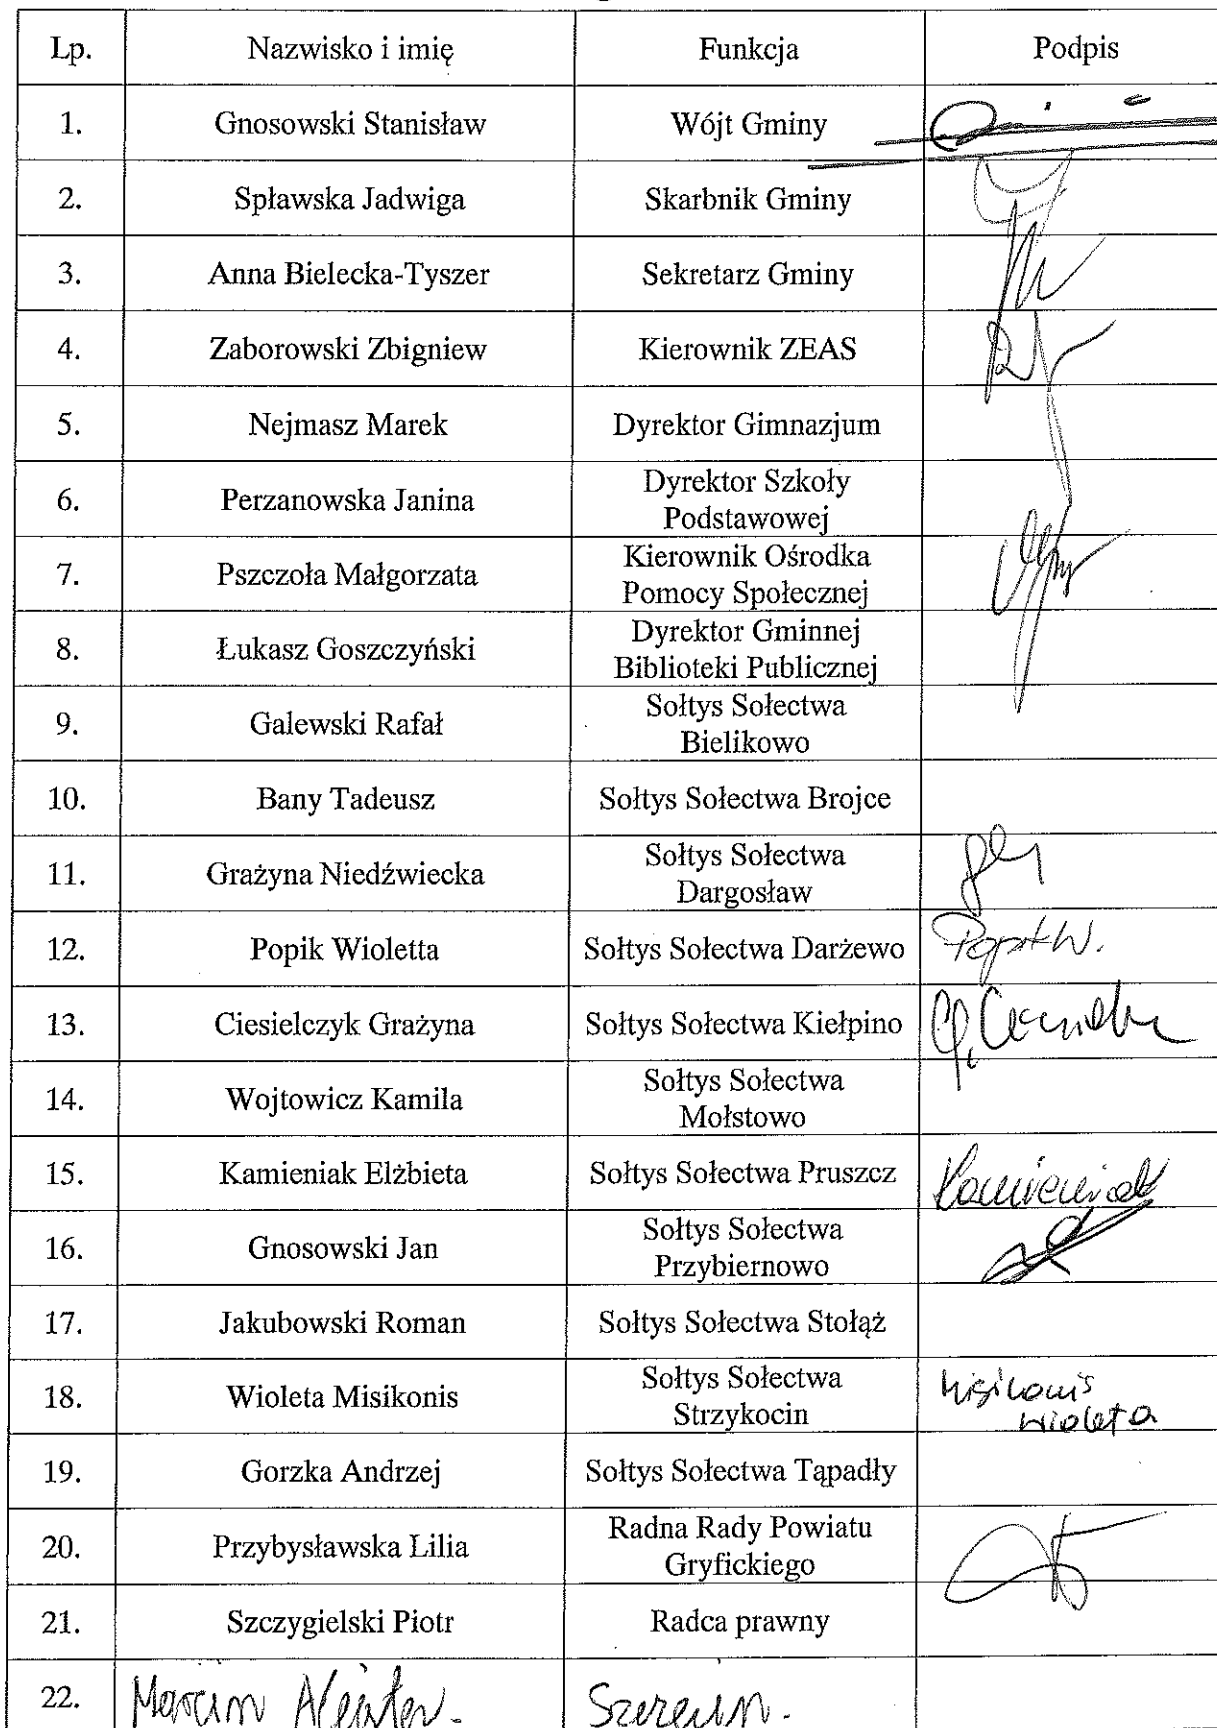 Lp. Nazwisko i imię Funkcja Podpis
1. Gnosowski Stanisław Wójt Gminy
2. Spławska Jadwiga Skarbnik Gminy
3. Anna Bielecka-Tyszer Sekretarz Gminy
4. Zaborowski Zbigniew Kierownik ZEAS
5. Nejmasz Marek Dyrektor Gimnazjum
6. Perzanowska Janina Dyrektor Szkoły
Podstawowej
7. Pszczoła Małgorzata Kierownik Ośrodka
Pomocy Społecznej
8. Łukasz Goszczyński Dyrektor Gminnej
Biblioteki Publicznej
9. Galewski Rafał Sołtys Sołectwa
Bielikowo
10. Bany Tadeusz Sołtys Sołectwa Brojce
11. Grażyna Niedźwiecka Sołtys Sołectwa
Dargosław
12. Popik Wioletta Sołtys Sołectwa Darżewo Popik W.
13. Ciesielczyk Grażyna Sołtys Sołectwa Kiełpino
14. Wojtowicz Kamila Sołtys Sołectwa
Mołstowo
15. Kamieniak Elżbieta Sołtys Sołectwa Pruszcz Kamieniak
16. Gnosowski Jan Sołtys Sołectwa
Przybiernowo
17. Jakubowski Roman Sołtys Sołectwa Stołąż
18. Wioleta Misikonis Sołtys Sołectwa
Strzykocin Misikonis
Wioleta
19. Gorzka Andrzej Sołtys Sołectwa Tąpadły
20. Przybysławska Lilia Radna Rady Powiatu
Gryfickiego
21. Szczygielski Piotr Radca prawny
22. Marcin